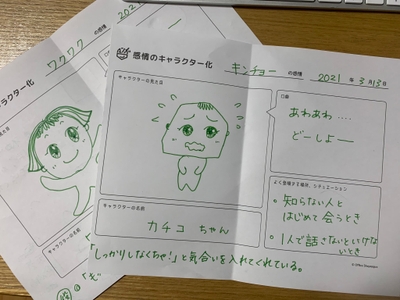 ワクワク の感情 202
キャラクター化
感情のキャラクター化
キンチョー の感情 2021年3月13日
キャラクターの見た目
口癖
あわあわ....
どーしよー
よく登場する場所、シチュエーション
・知らない人と
はじめて会うとき
・1人で話さないといけない
いとき
キャラクターの名前
カチコ ちゃん
「しっかりしなくちゃ!」と気合いを入れてくれている。
キャラクターの見た目
キャラクターの名前